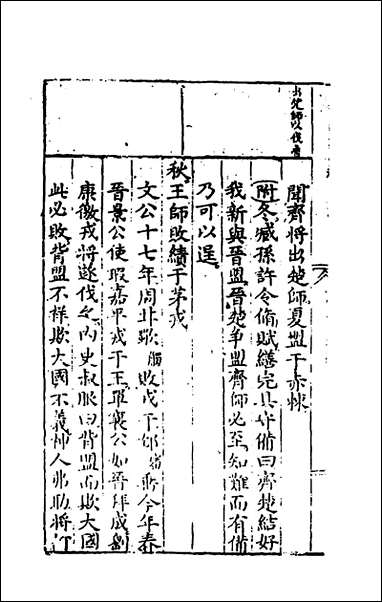 師以伐
聞齊將出楚師夏盟于赤棘
附冬臧孫許令脩賦繕完具守備曰齊楚結好
我新與晉盟晉楚爭盟齊師必至知難而有備
乃可以逞
秋王師敗績于茅戎
文公十七年周甘歜觸敗戎于邥審垂今年春
晉景公使瑕嘉平戎于王單襄公如晉拜成劉
康徼戎將遂伐之內史叔服曰背盟而欺大國
此必敗背盟不祥欺大國不義神人弗助將何